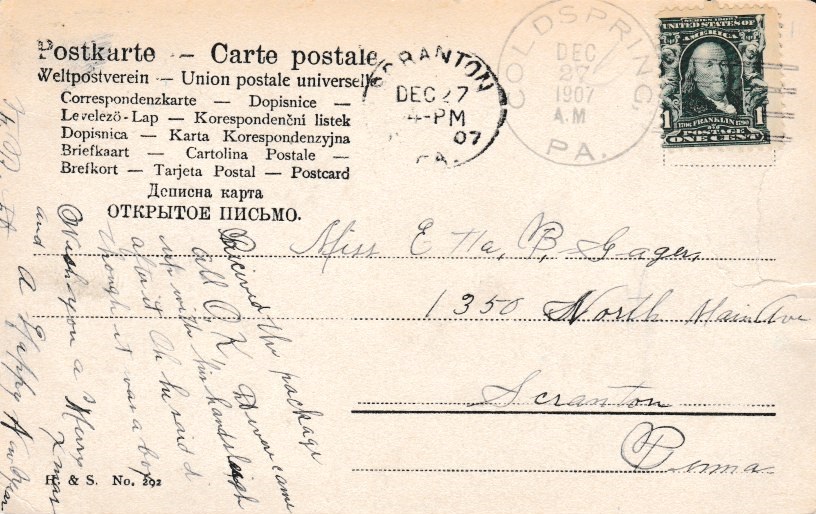 Postkarte — Carte postale
Weltpostverein — Union postale universelle
Correspondenzkarte — Dopisnice —
Levelező-Lap — Korespondenční listek
Dopisnica — Karta Korespondenzyjna
Briefkaart — Cartolina Postale —
Brefkort — Tarjeta Postal — Postcard
Дописна карта
ОТКРЫТОЕ ПИСЬМО.
SCRANTON
DEC 27
4-PM
07
PA.
COLDSPRING,
DEC
27
1907
A.M
PA.
SERIES 1902
UNITED STATES OF
AMERICA
1706 FRANKLIN 1790
1 POSTAGE 1
ONE CENT
Miss Etta, B, Gager,
1350 North Main Ave
Scranton
Penna
Recieved the package
all O K, Dever came
up with his handsleigh
after it Oh he said
though it was a box
Wish you a Merry
Xmas
and a Happy New Year
H. & S. No. 292